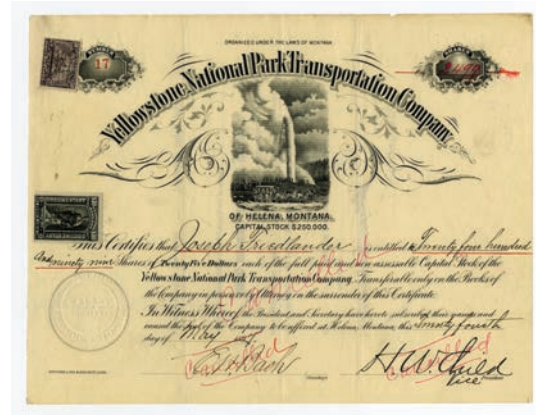 ORGANIZED UNDER THE LAWS OF MONTANA
NUMBER
17
SHARES
2499
Yellowstone National Park Transportation Company
OF HELENA, MONTANA.
CAPITAL STOCK $250,000.
This Certifies that Joseph Friedlander is entitled to Twenty four hundred
and ninety nine Shares of Twenty Five Dollars each of the full paid and non assessable Capital Stock of the
Yellowstone National Park Transportation Company, Transferable only on the Books of
the Company in person or by Attorney on the surrender of this Certificate.
In Witness Whereof the President and Secretary have hereto subscribed their names and
caused the Seal of the Company to be affixed at Helena, Montana, this
day of May
Cancelled
E. W. Bach
Secretary
H. W. Child
Vice President
Cancelled
Cancelled